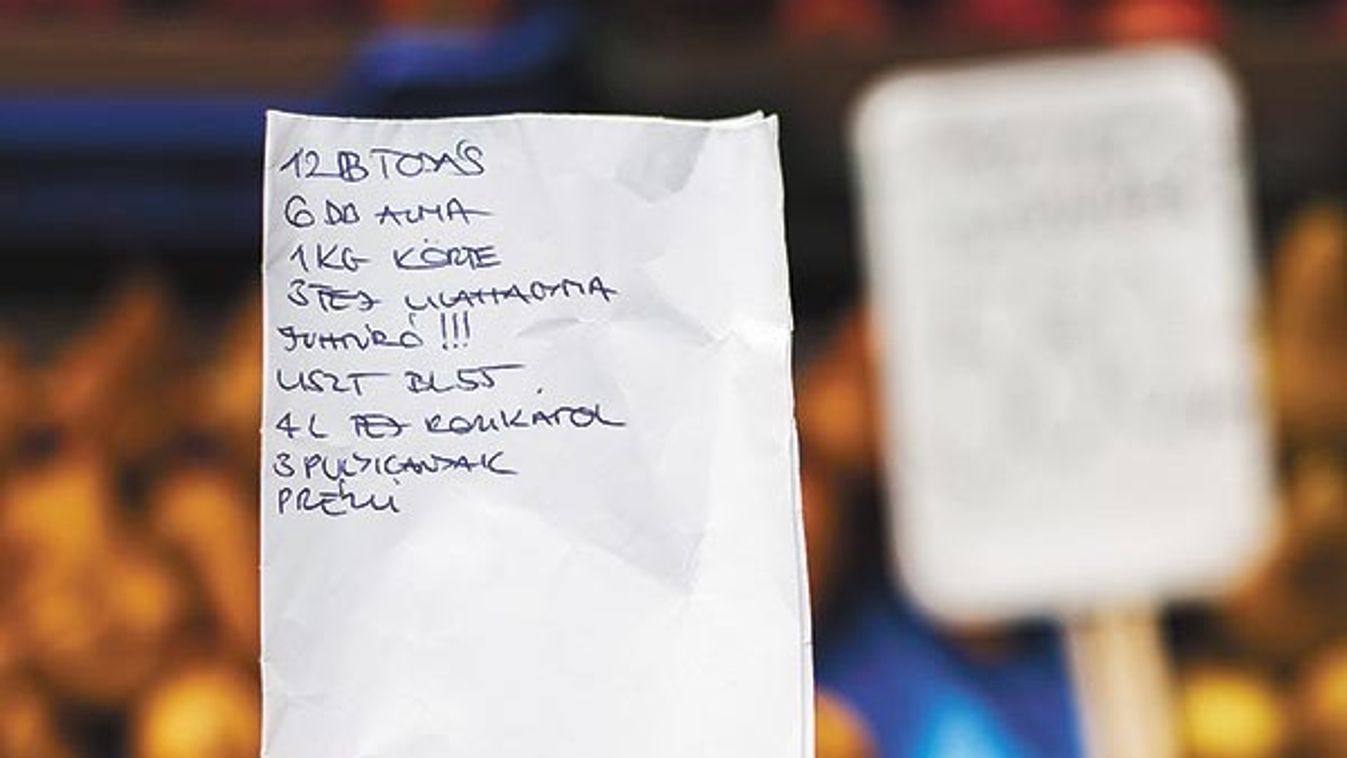 12 DB TOJÁS
6 DB ALMA
1 KG KÖRTE
3 FEJ LILAHAGYMA
JUHTÚRÓ !!!
LISZT BL55
4 L TEJ ROZIKÁTÓL
3 PULYKANYAK
PRÉZLI